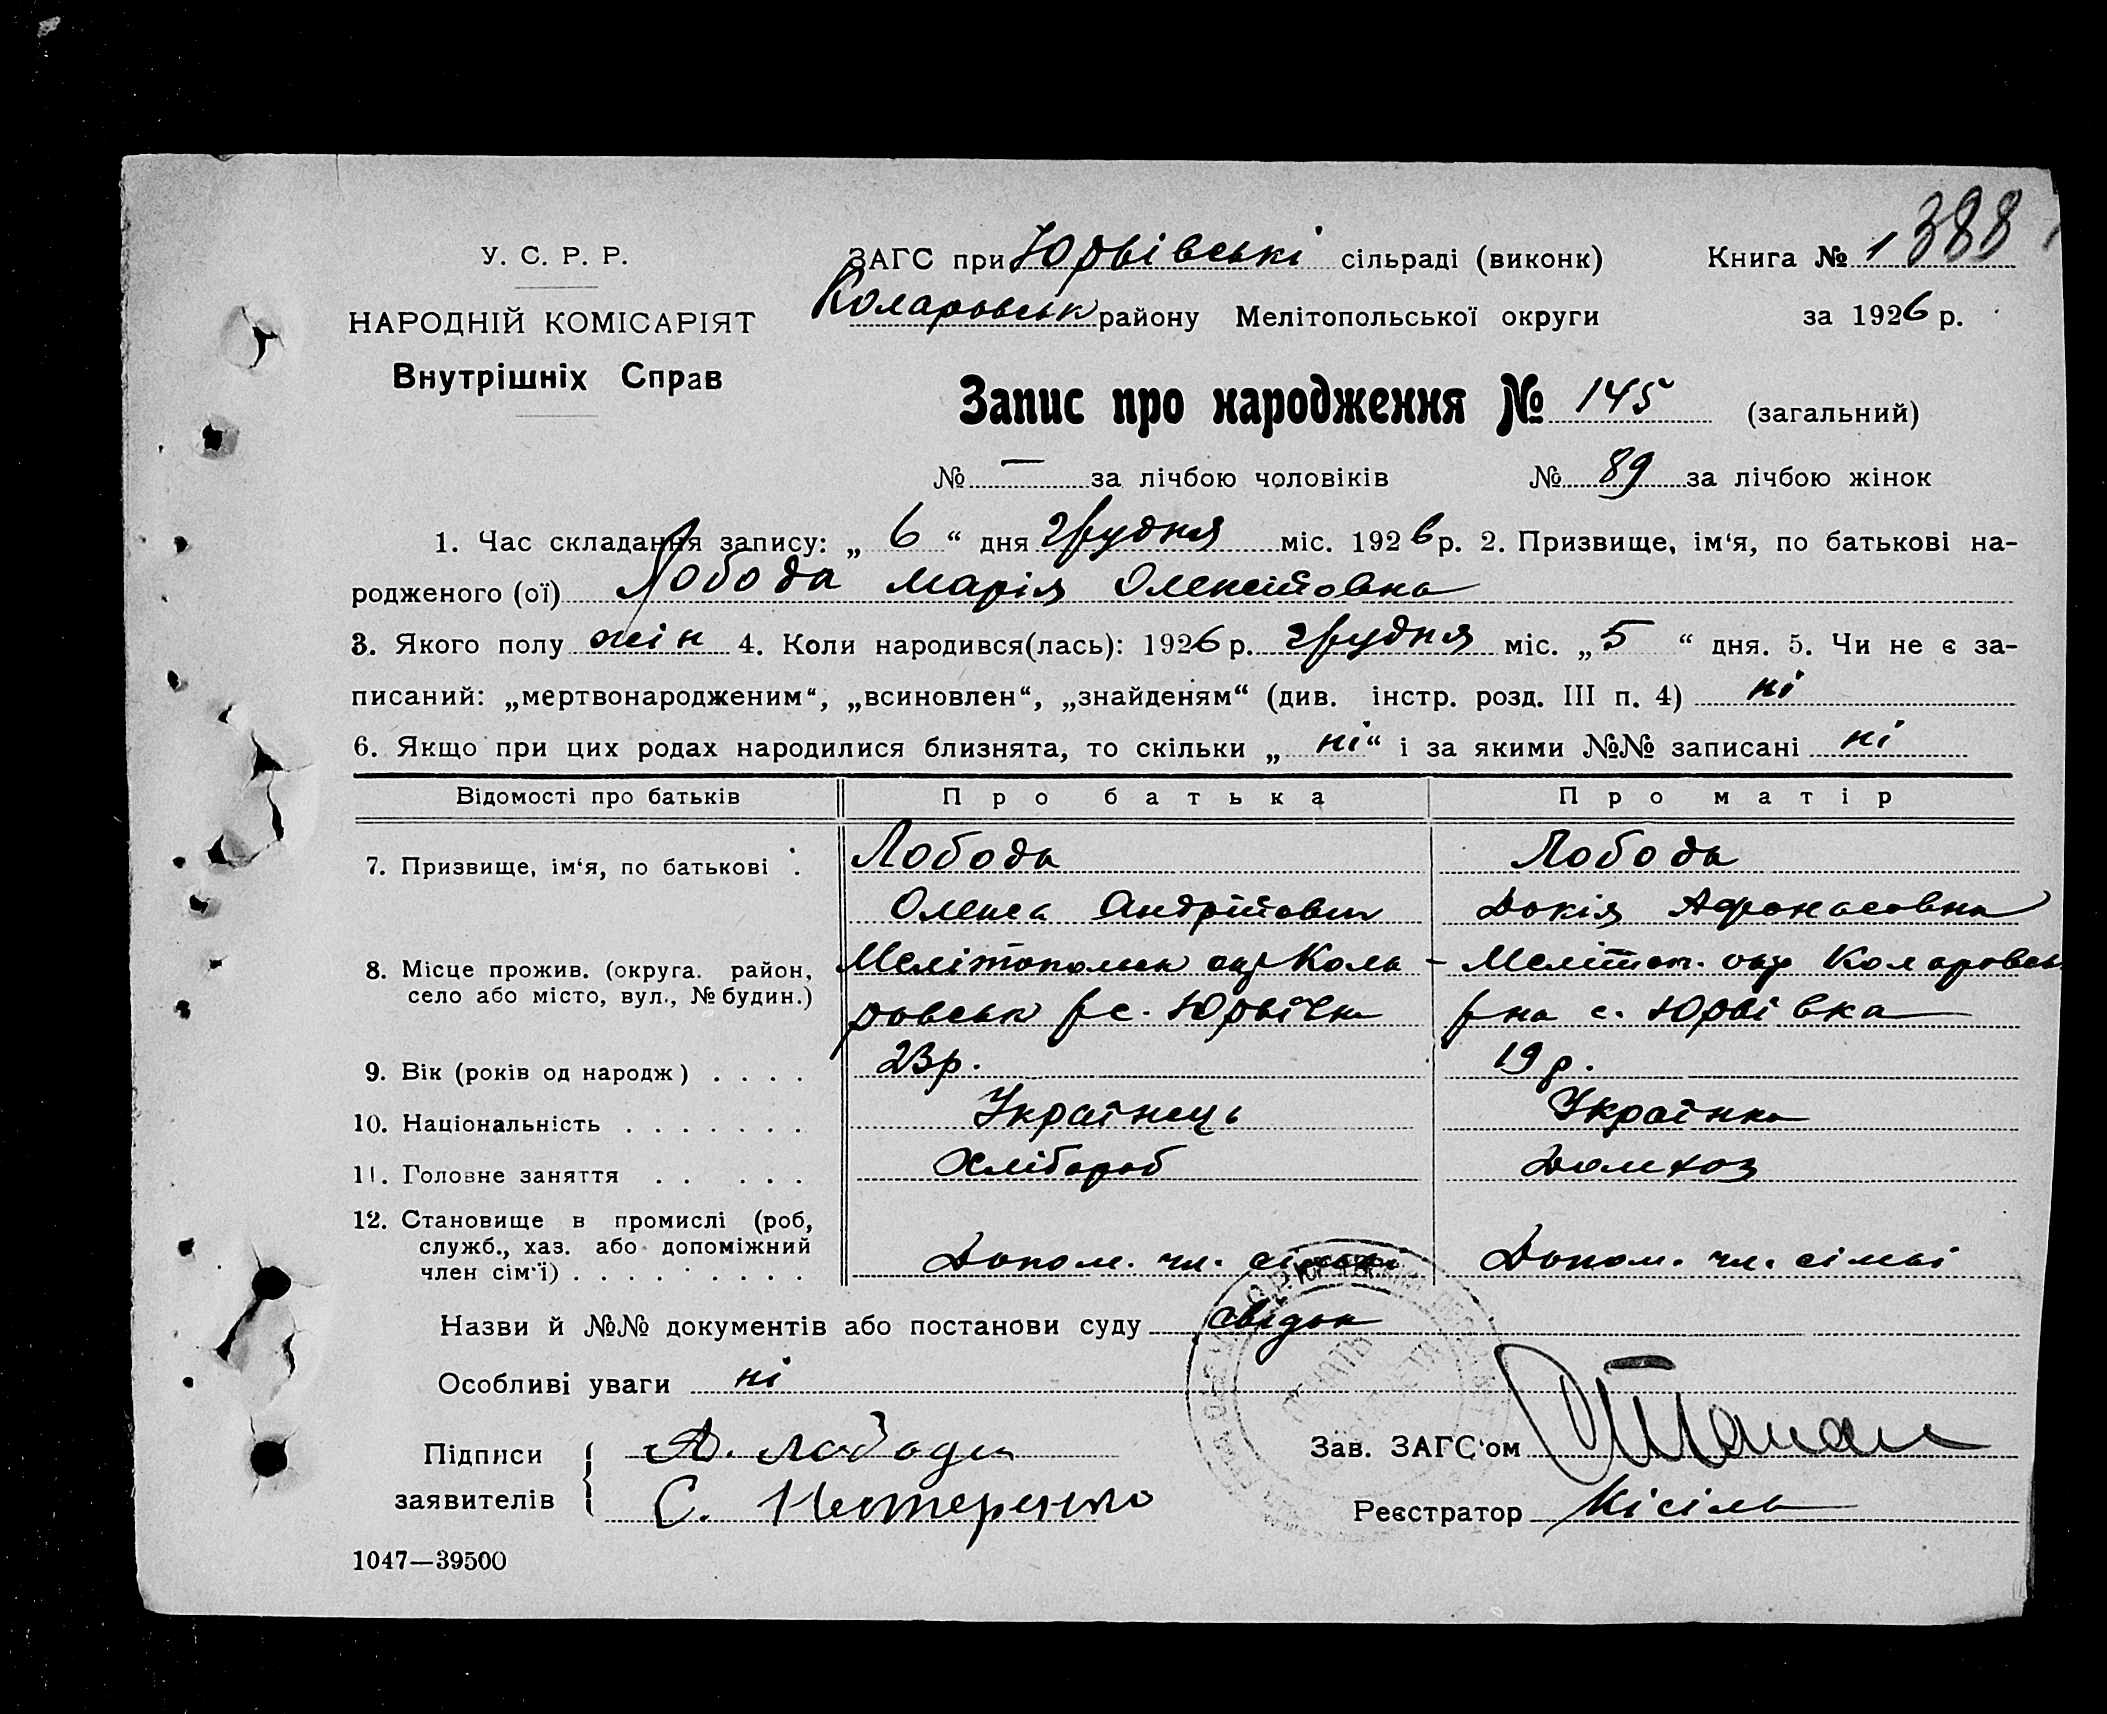 388
У. С. Р. Р.
НАРОДНІЙ КОМІСАРІЯТ
Внутрішніх Справ
ЗАГС при Юрьівські сільраді (виконк)
Коларовськ району Мелітопольської округи
Книга № 1
за 1926 р.
Запис про народження № 145 (загальний)
№ — за лічбою чоловіків № 89 за лічбою жінок
1. Час складання запису: „ 6 “ дня грудня міс. 1926 р. 2. Призвище, ім‘я, по батькові на-
родженого (ої) Лобода Марія Олексіївна
3. Якого полу жін 4. Коли народився(лась): 1926 р. грудня міс. „ 5 “ дня. 5. Чи не є за-
писаний: „мертвонародженим“, „всиновлен“, „знайденям“ (див. інстр. розд. III п. 4) ні
6. Якщо при цих родах народилися близнята, то скільки „ ні “ і за якими №№ записані ні
Відомості про батьків Про батька Про матір
7. Призвище, ім‘я, по батькові Лобода Лобода
Олекса Андрійович Докія Афонасовна
8. Місце прожив. (округа. район, Мелітопольск окр Кола- Меліт. окр Коларовськ
село або місто, вул., № будин.) ровськ р с. Юрьівка р на с. Юрьівка
9. Вік (років од народж) . . . . 23 р. 19 р.
10. Національність . . . . . . . Українець Українка
11. Головне заняття . . . . . Хлібороб Домхоз
12. Становище в промислі (роб,
служб., хаз. або допоміжний
член сім‘ї) . . . . . . . . . Допом. чл. сімьі Допом. чл. сімьі
Назви й №№ документів або постанови суду
Особливі уваги ні
Підписи заявителів
Лобода
С. Нестеренко
Зав. ЗАГС‘ом
Реєстратор Кісіль
1047—39500